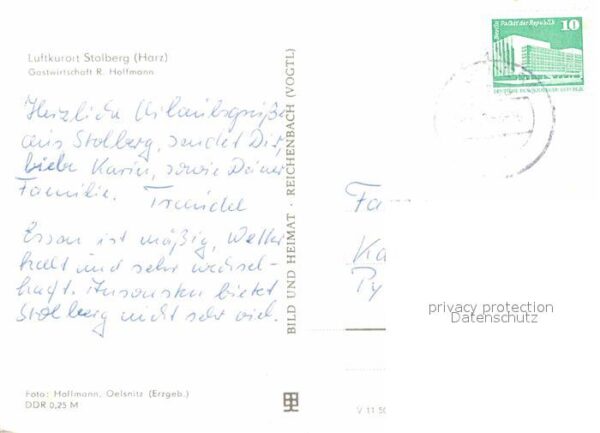 Luftkurort Stolberg (Harz)
Gastwirtschaft R. Hoffmann
Herzliche Urlaubsgrüße
aus Stolberg, sendet Dir,
liebe Karin, sowie Deiner
Familie.
Essen ist mäßig, Wetter
kalt und sehr wechsel-
haft. Ansonsten bietet
Stolberg nicht sehr viel.
Foto: Hoffmann, Oelsnitz (Erzgeb.)
DDR 0,25 M
BILD UND HEIMAT · REICHENBACH (VOGTL)
Berlin Palast der Republik
10
Fa
Ka
Py
privacy protection
Datenschutz
V 11 50